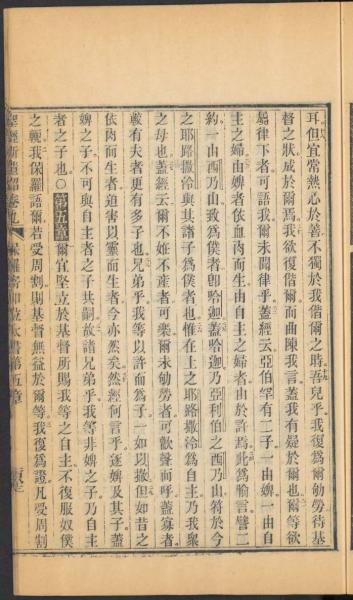 耳但宜常熱心於善不獨於我偕爾之時吾兒乎我復為爾劬勞待基
督之狀成於爾焉我欲復偕爾而曲陳我言蓋我有疑於爾也爾等欲
屬律下者可語我爾未聞律乎蓋經云亞伯罕有二子一由婢一由自
主之婦由婢者依血肉而生由自主之婦者由於許焉此為喻言譬二
約一由西乃山致為僕者即哈迦蓋哈迦乃亞利伯之西乃山符於今
之耶路撒冷與其諸子為僕者也惟在上之耶路撒冷為自主乃我眾
之母也蓋經云爾不妊不產者可樂爾未劬勞者可歡聲而呼蓋寡者
較有夫者更有多子也兄弟乎我等以許而為子一如以撒但如昔之
依肉而生者迫害以靈而生者今亦然矣然經何言乎逐婢及其子蓋
婢之子不可與自主者之子共嗣故諸兄弟乎我等非婢之子乃自主
者之子也○第五章爾宜堅立於基督所賜我等之自主不復服奴僕
之軛我保羅語爾若受周割則基督無益於爾等我復為證凡受周割
卷九 第五章